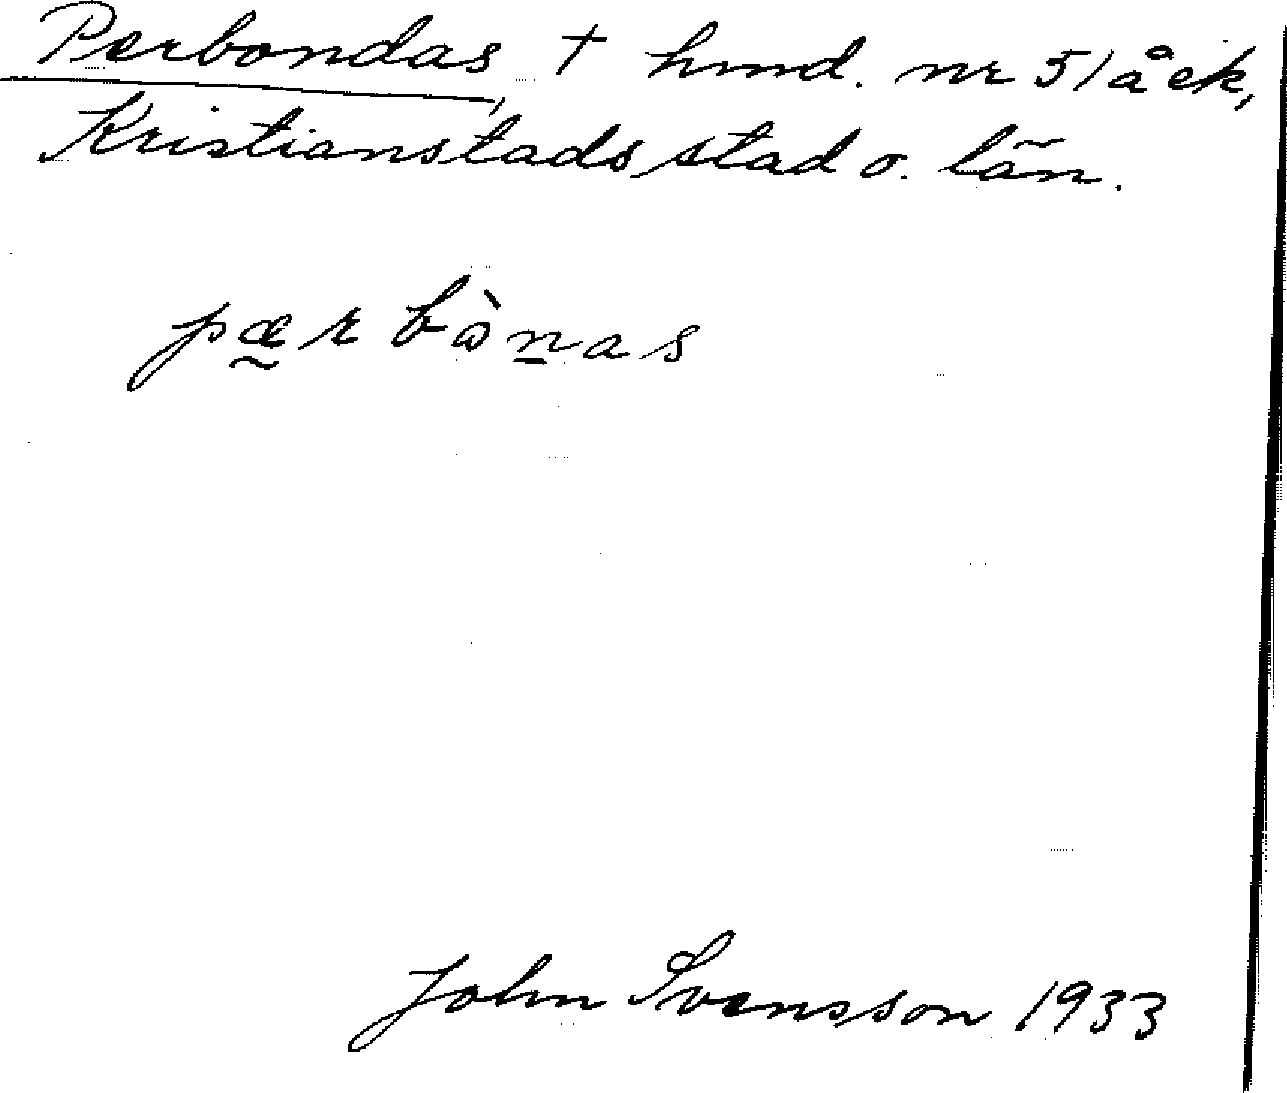 Perbondas, † hmd. nr 51 å ek,
Kristianstads stad o. län.
pæ̰r bɷ̀n̲as
John Svensson 1933